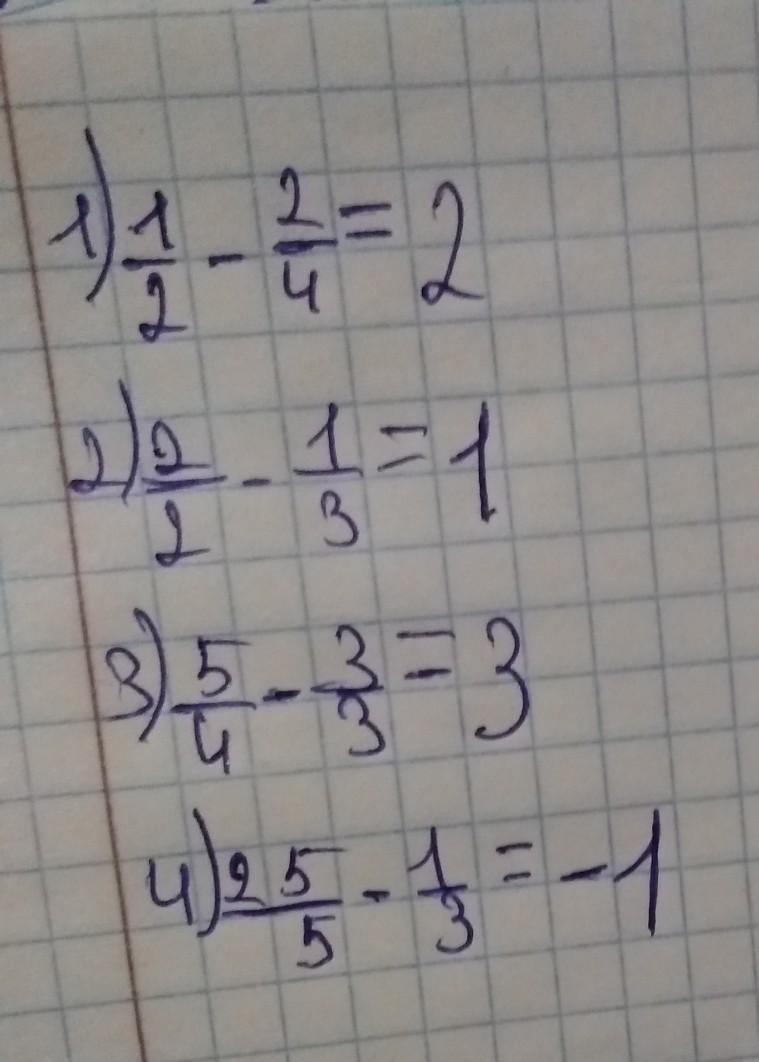 1) 1/2 - 2/4 = 2
2) 2/2 - 1/3 = 1
3) 5/4 - 3/3 = 3
4) 25/5 - 1/3 = -1